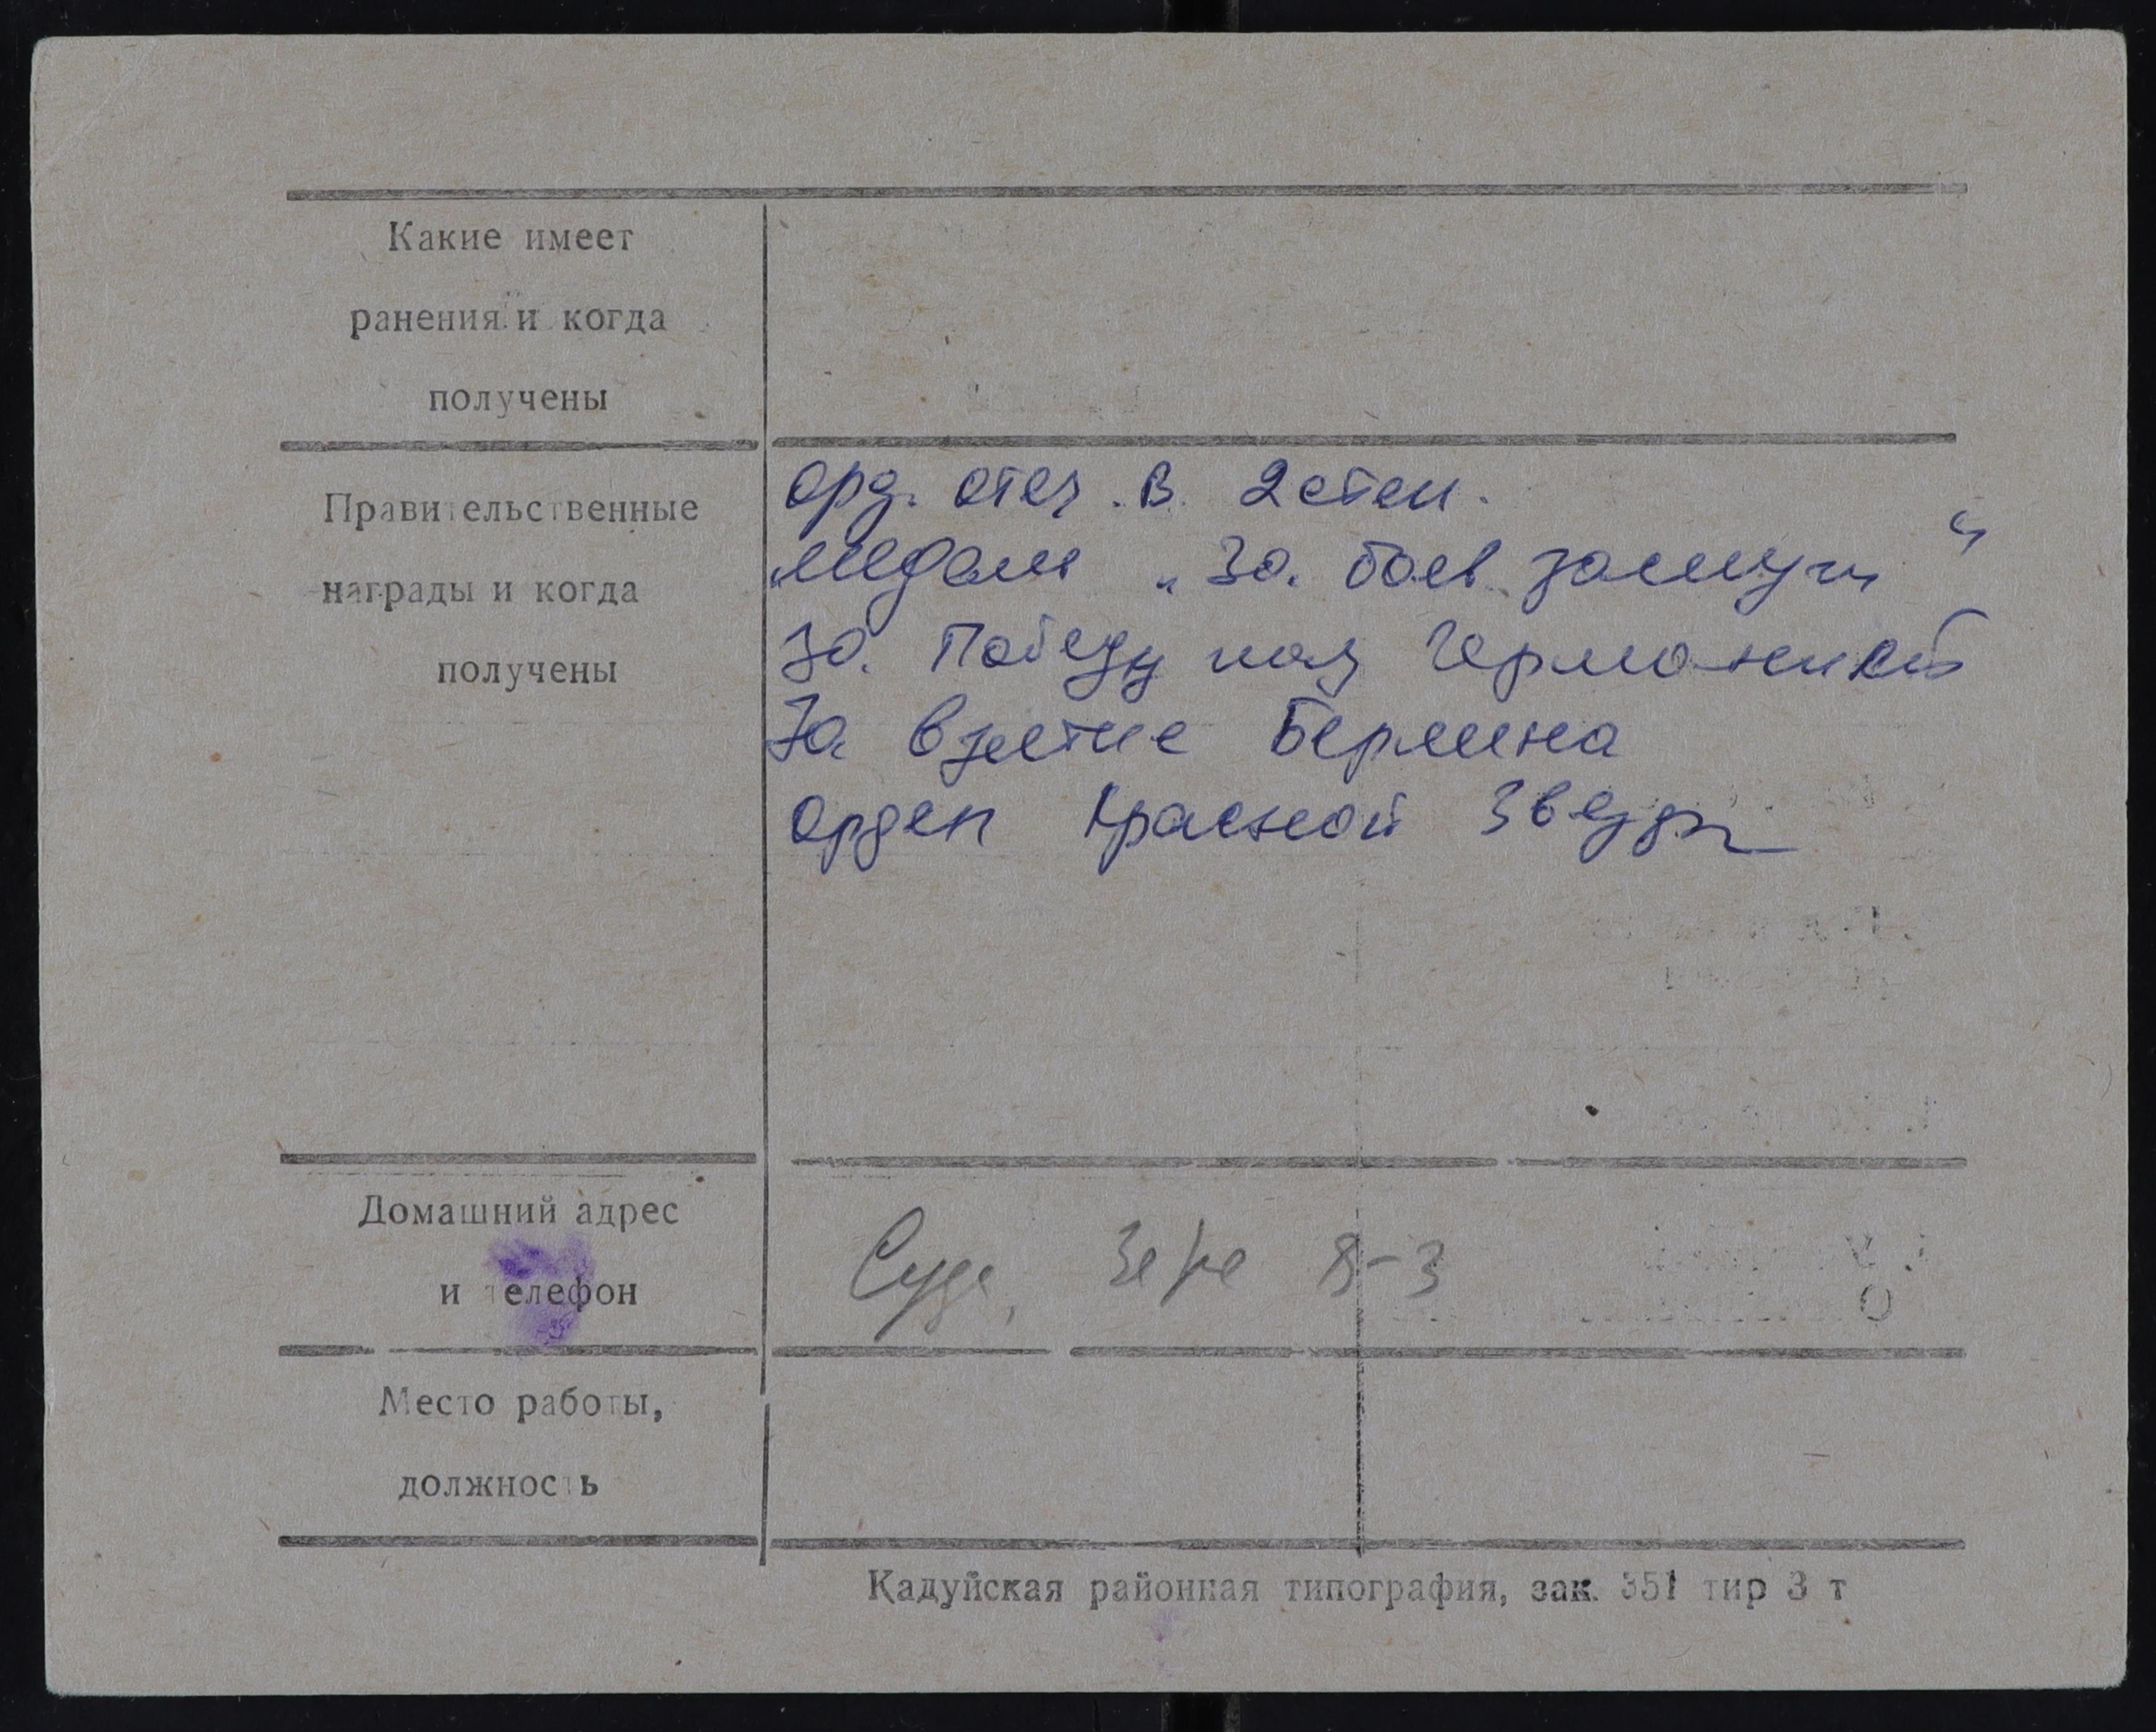 Какие имеет
ранения и когда
получены
Правительственные
награды и когда
получены
орд. отеч. в. 2 степ.
медаль „За боев заслуги“
За Победу над Германией
За взятие Берлина
орден Красной Звезды
Домашний адрес
и телефон
Суда, 8-3
Место работы,
должность
Кадуйская районная типография, зак. 351 тир 3 т